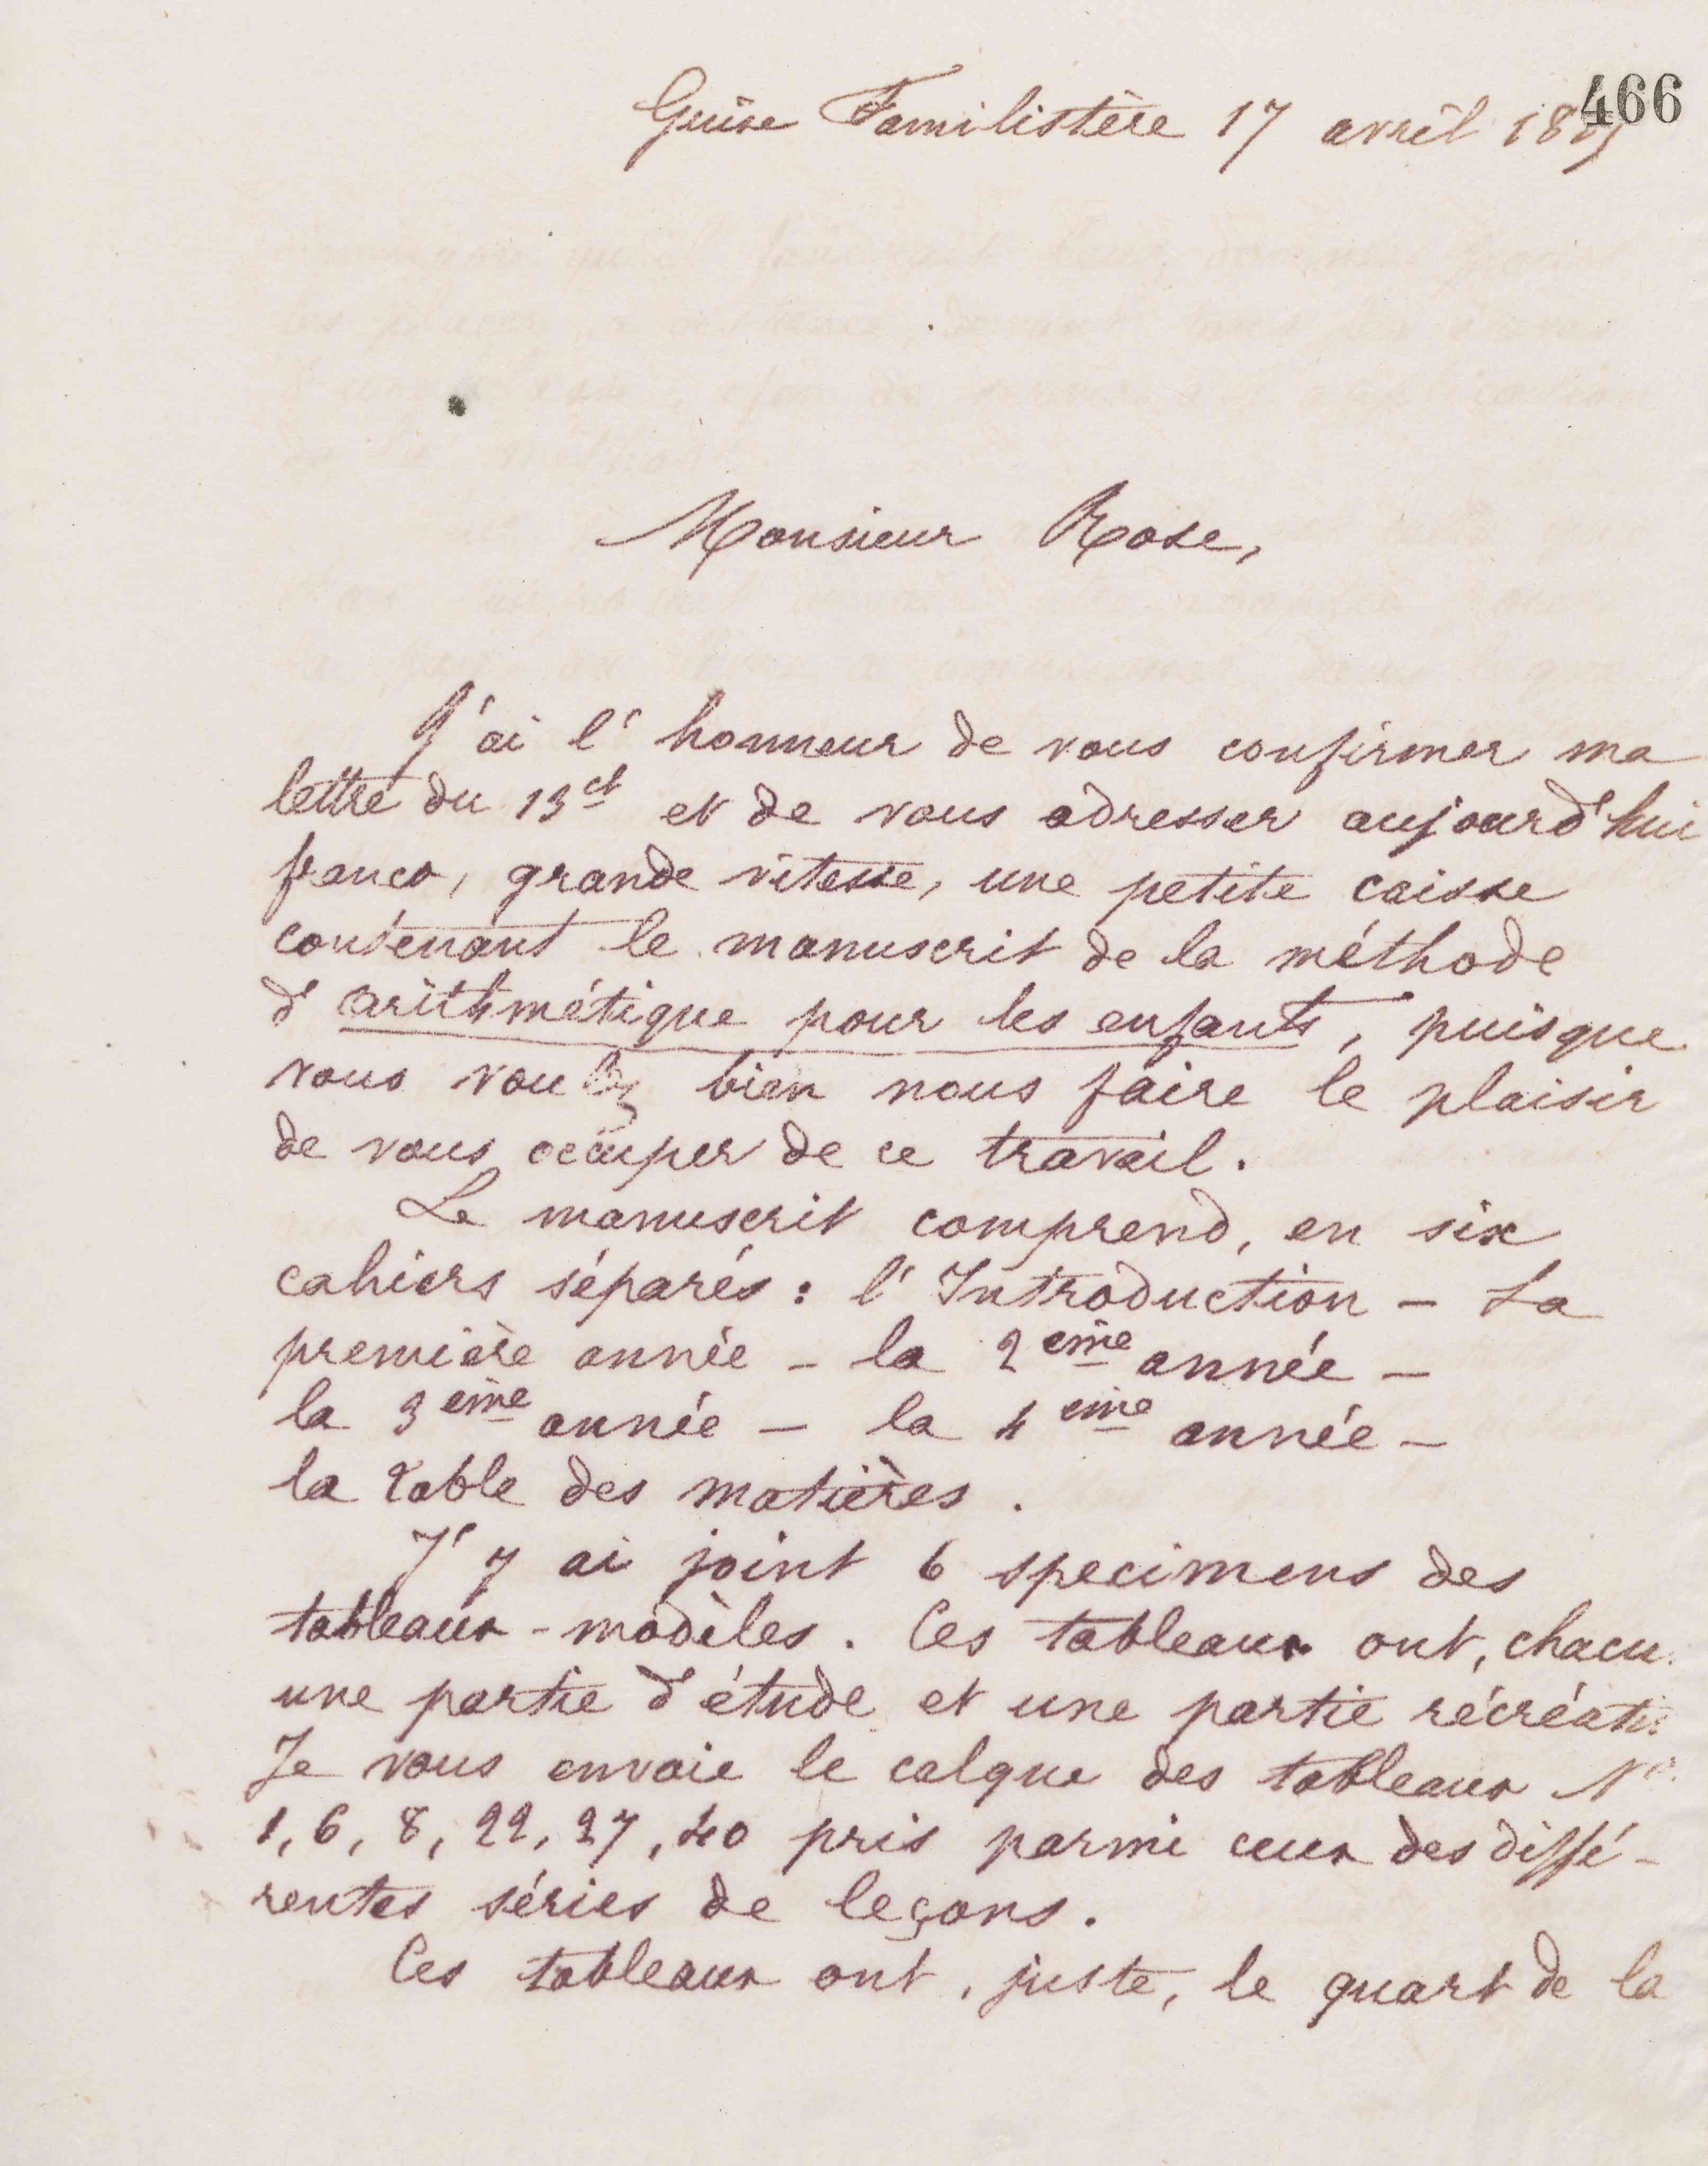 466
Guise Familistère 17 avril
Monsieur Rose,
J'ai l'honneur de vous confirmer ma
lettre du 13 ct et de vous adresser aujourd'hui
franco, grande vitesse, une petite caisse
contenant le manuscrit de la méthode
d'arithmétique pour les enfants, puisque
vous voulez bien nous faire le plaisir
de vous occuper de ce travail.
Le manuscrit comprend, en six
cahiers séparés : l'Introduction - La
première année - la 2eme année -
la 3eme année - la 4eme année -
la table des matières.
J'y ai joint 6 specimens des
tableaux-modèles. Ces tableaux ont, chacu
une partie d'étude et une partie récréati
Je vous envoie le calque des tableaux No
1, 6, 8, 22, 27, 40 pris parmi ceux des diffé-
rentes séries de leçons.
Ces tableaux ont, juste, le quart de la